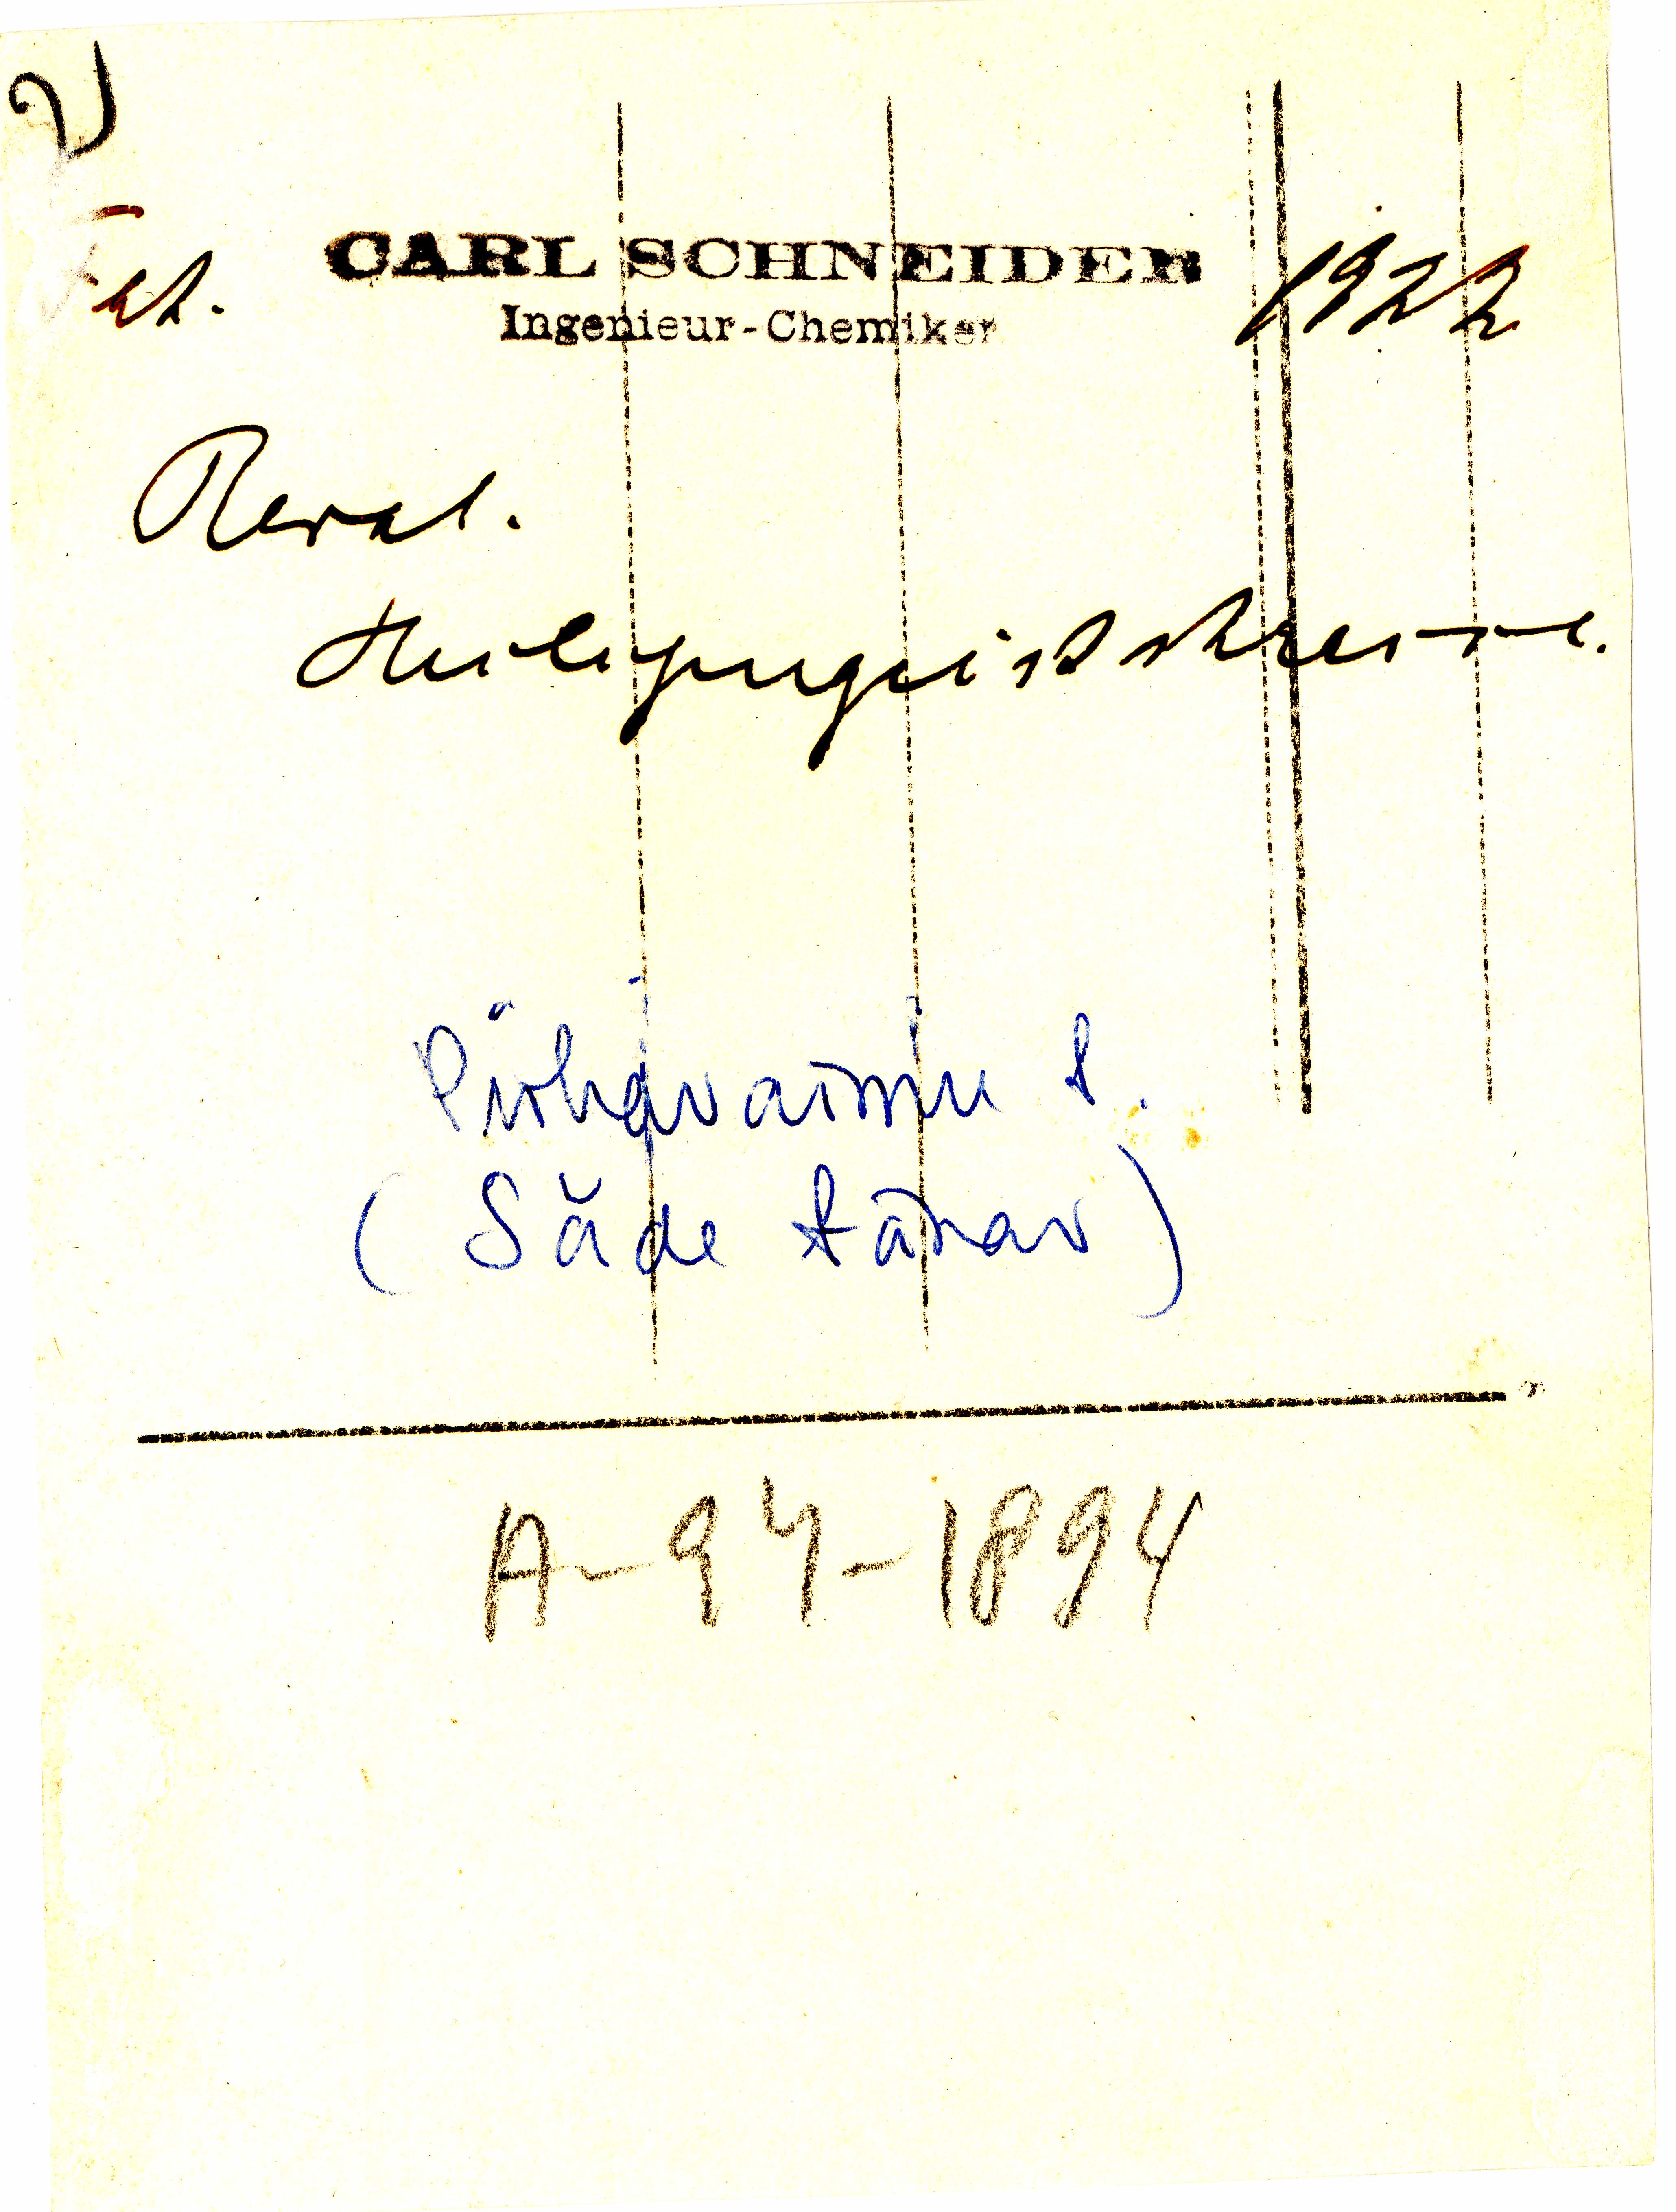 CARL SCHNEIDER
Ingenieur-Chemiker
1922
Reval.
Heiligengeiststrasse.
Pühavaimu t.
(Säde tänav)
A-94-1894